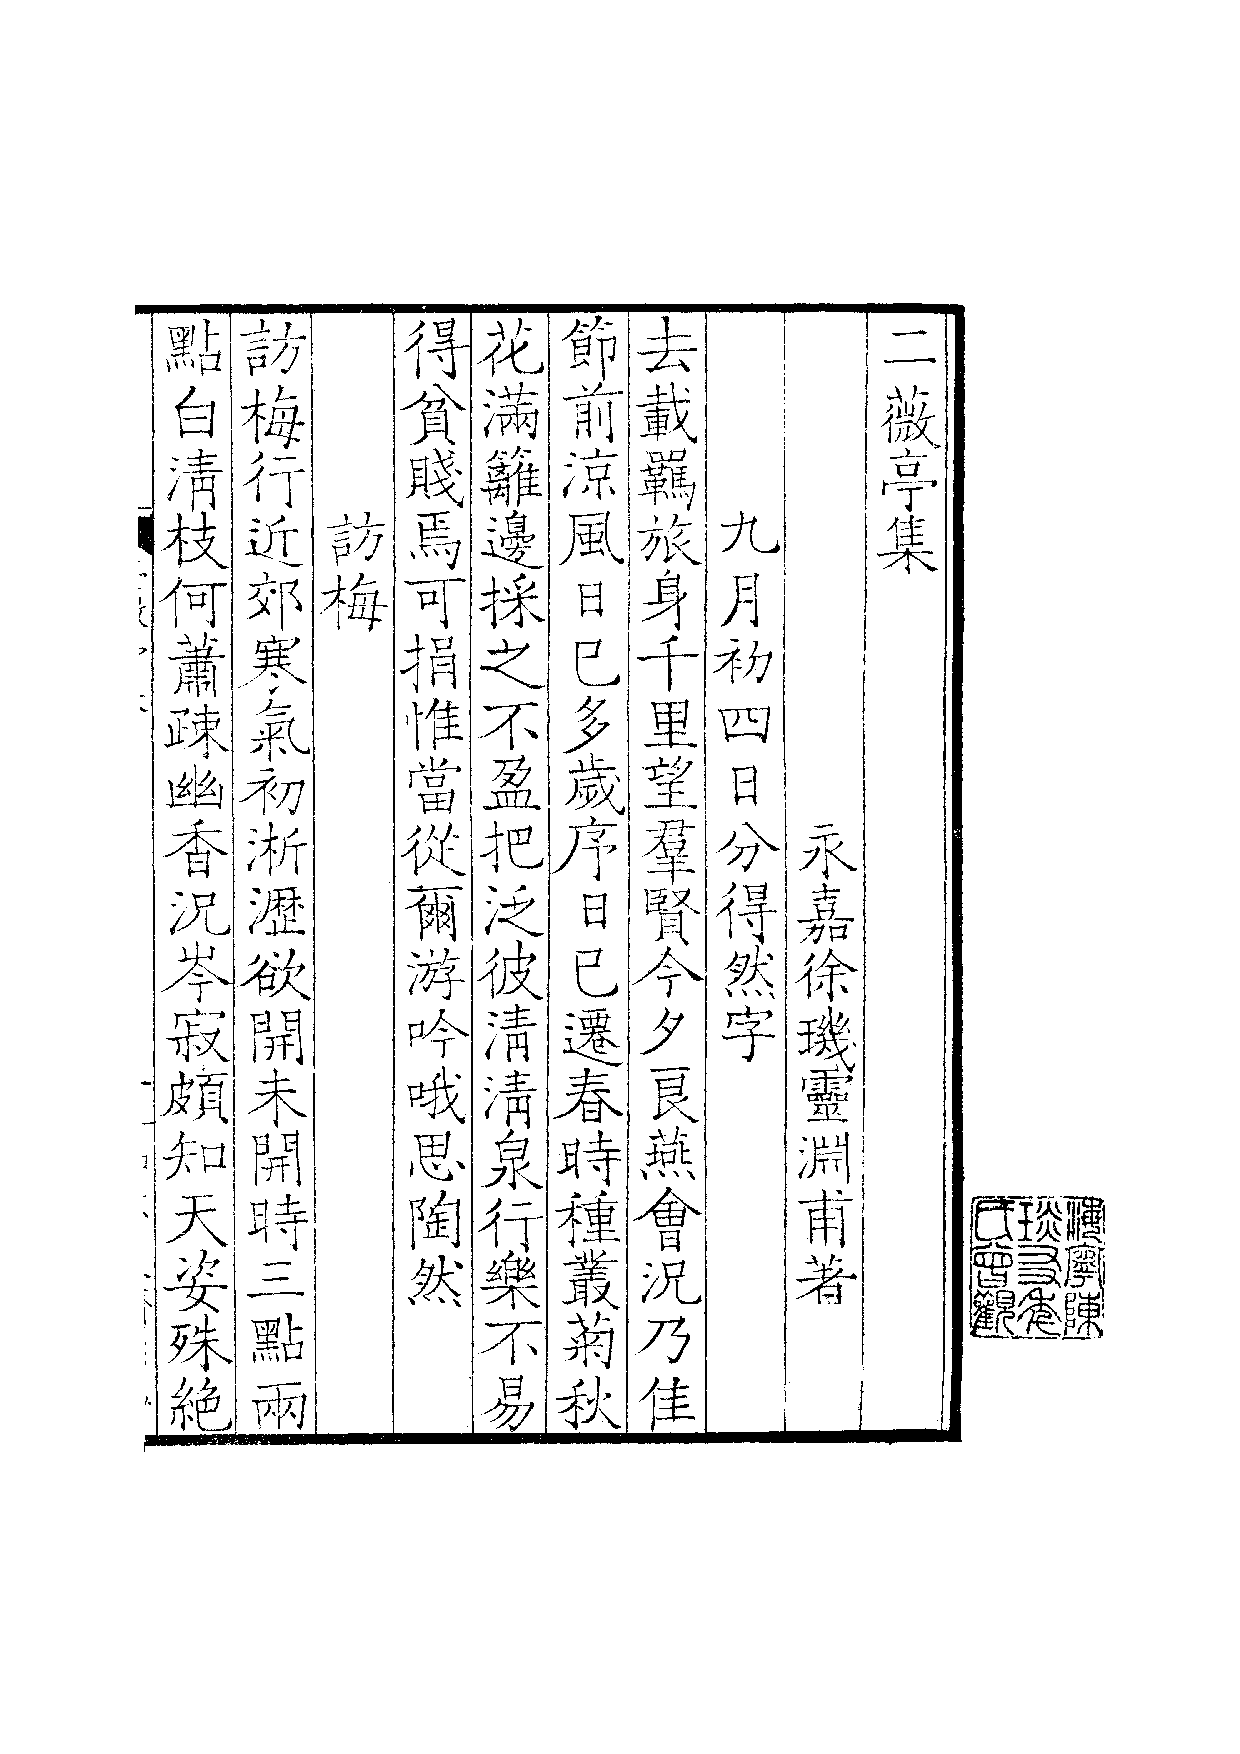 二薇亭集
永嘉徐璣靈淵甫著
九月初四日分得然字
去載羈旅身千里望羣賢今夕良燕會況乃佳
節前涼風日已多歲序日已遷春時種叢菊秋
花滿籬邊採之不盈把泛彼清清泉行樂不易
得貧賤焉可捐惟當從爾游吟哦思陶然
訪梅
訪梅行近郊寒氣初淅瀝欲開未開時三點兩
點白清枝何蕭疎幽香況岑寂頗知天姿殊絶
海寧陳
琰友年
氏曾觀